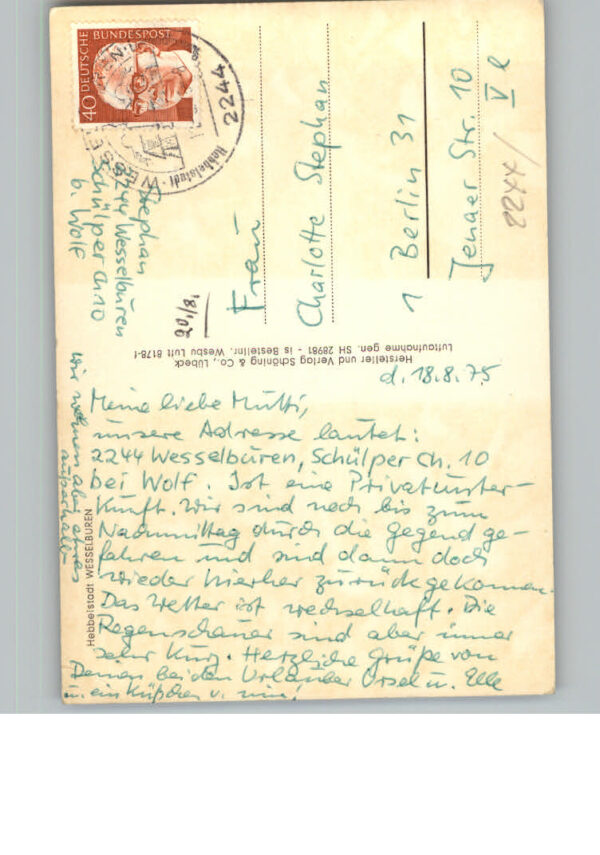 DEUTSCHE BUNDESPOST
40
2244
Hebbelstadt
Stephan
2244 Wesselburen
Schülper Ch. 10
b. Wolf
20./8.
Frau
Charlotte Stephan
1 Berlin 31
Jenaer Str. 10
2244/
V l
Hersteller und Verlag Schöning & Co., Lübeck
Luftaufnahme gen. SH 28981 - is Bestellnr. Wesbu Luft 8178-f
d. 18.8.75
Meine liebe Mutti,
unsere Adresse lautet:
2244 Wesselburen, Schülper Ch. 10
bei Wolf. Ist eine Privatunter-
kunft. Wir sind noch bis zum
Nachmittag durch die Gegend ge-
fahren und sind dann doch
wieder hierher zurückgekommen.
Das Wetter ist wechselhaft. Die
Regenschauer sind aber immer
sehr kurz. Herzliche Grüße von
Deinen beiden Urlauber Ursel u. Elle
u. ein Küßchen v. mir!
Wir wohnen aber etwas
außerhalb
Hebbelstadt WESSELBUREN